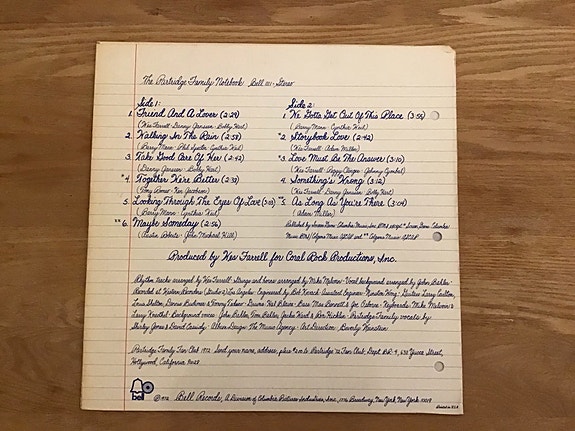 The Partridge Family Notebook Bell 1111 - Stereo
Side 1:
1. Friend And A Lover (2:29)
(Wes Farrell - Danny Janssen - Bobby Hart)
2. Walking In The Rain (2:57)
(Barry Mann - Phil Spector - Cynthia Weil)
3. Take Good Care Of Her (2:42)
(Danny Janssen - Bobby Hart)
*4. Together We're Better (2:33)
(Tony Romeo - Ken Jacobson)
5. Looking Through The Eyes Of Love (3:03)
(Barry Mann - Cynthia Weil)
**6. Maybe Someday (2:56)
(Austin Roberts - John Michael Hill)
Side 2:
1. We Gotta Get Out Of This Place (3:54)
(Barry Mann - Cynthia Weil)
*2. Storybook Love (2:42)
(Wes Farrell - Adam Miller)
*3. Love Must Be The Answer (3:10)
(Wes Farrell - Peggy Clinger - Johnny Cymbal)
4. Something's Wrong (3:12)
(Wes Farrell - Danny Janssen - Bobby Hart)
*5. As Long As You're There (3:04)
(Adam Miller)
Published by Screen Gems-Columbia Music, Inc. BMI except
Produced by Wes Farrell for Coral Rock Productions, Inc.
Rhythm tracks arranged by Wes Farrell - Strings and horns arranged by Mike Melvoin - Vocal background arranged by John Bahler -
Recorded at Western Recorders (Studio 2) Los Angeles - Engineered by Bob Kovach - Assistant Engineer - Winston Wong - Guitars - Larry Carlton,
Louis Shelton, Dennis Budimer & Tommy Tedesco - Drums - Hal Blaine - Bass - Max Bennett & Joe Osborn - Keyboards - Mike Melvoin &
Larry Knechtel - Background voices - John Bahler, Tom Bahler, Jackie Ward & Ron Hicklin - Partridge Family vocals by
Shirley Jones & David Cassidy - Album Design - The Music Agency - Art Direction - Beverly Weinstein
Partridge Family Fan Club 1972. Send your name, address, plus to Partridge '72 Fan Club, Dept. 630 Yucca Street,
Hollywood, California 90028
bell
© 1972 Bell Records, A Division of Columbia Pictures Industries, Inc., 1776 Broadway, New York, New York 10019
Printed in U.S.A.